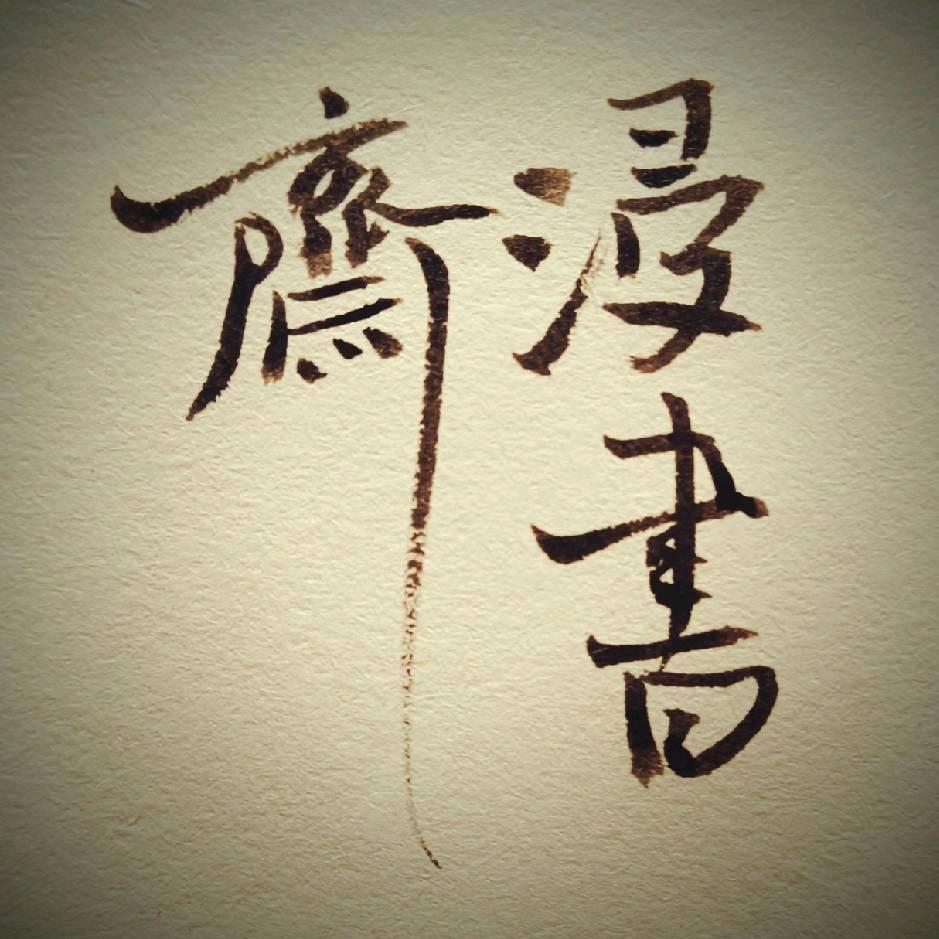 浸書
齋